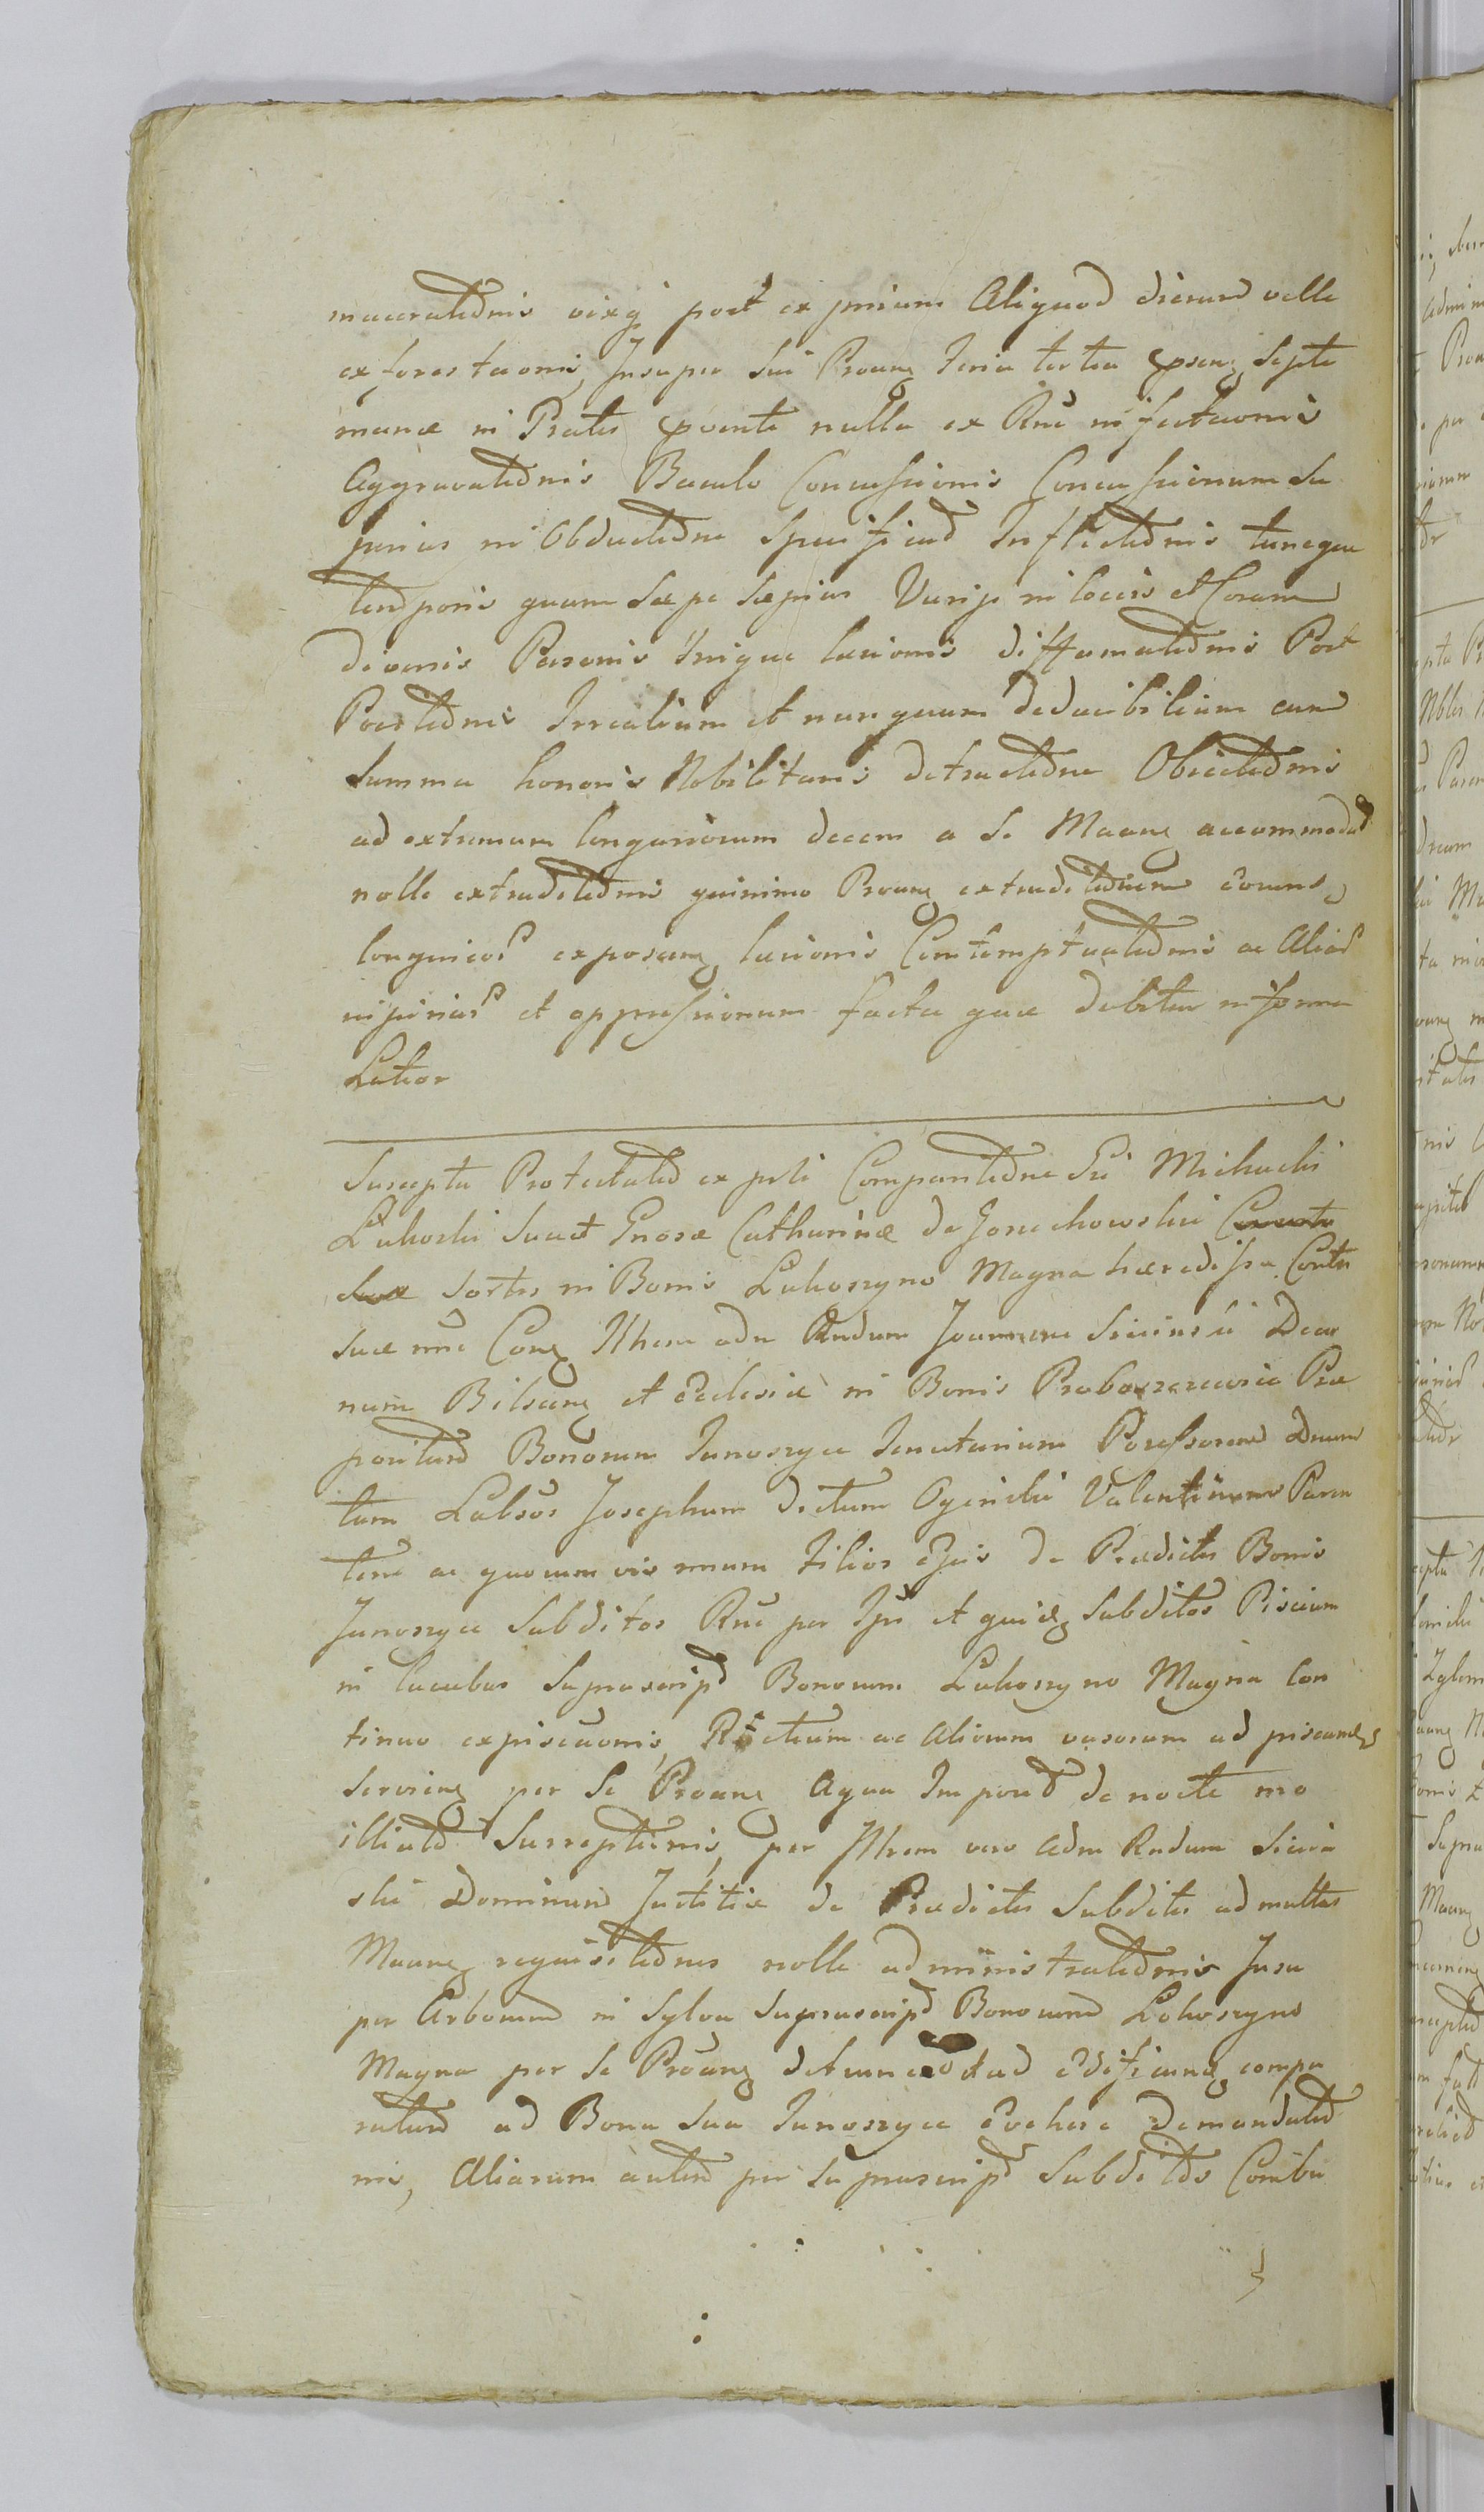 maceraõnis vixq post ex pmium Aliquod dierum velle
exforestaonis, Insuper sui Proang feria tertia pseng septi
manæ in Pratis pvente nulla ex Rne infestaonis
Aggravaõnis Baculo Concussionis Concussionum su
perius in Obductõne specificat Inflictõnis tuncque
temporis quam sæpe sæpius Varijs in locis et Coram
diversis Personis Iniquæ læsionis diffamatõnis Post
Positõnis Irrealium et nunquam deducibilium cum
summa honoris Nobilitaris detractõne Obiectõnis
ad extremum longuriorum decem a se Maang accommodat
nolle extraditõnis quinimo Proang extraditõnem eorund
longurior exposcang læsionis Contemptuatõnis ac Alior
injuriar et oppressionum facta quæ debitur in forma
Latior
Suscepta Protestatio ex psti Comparitõne Gsi Michaelis
Lukoski suæ et Gnosæ Catharinæ de Jorzchowskie
sortis in Bonis Lukoszyno Magna hæredissæ Contis
suæ nne Cong Ilhem adm Rndum Joannem Sicinski Deca
num Bilscang et Ecclesiæ in Bonis Proboszczewice Præ
positum Bonorum Junoszyce Tenutarium Possessorem Duum
tum Labsos Josephum dictum Ogrinski Valentinum Paren
tem ac quorum vis mum Filios Ejus de Prædictis Bonis
Junoszyce subditos Rne per Ips et quilg subditos Piscium
in lacubus suprascrip Bonorum Lukoszyno Magna Con
tinuo expiscaonis, Retium ac Aliorum vasorum ad piscand
servieng per se Proang Aqua Imposit de nocte mo
illiato surreptionis, per Ilhrem vero Adm Rndum Sicin
ski Dominum Justitiæ de Prædictis subditis ad multas
Maang requisitõnes nolle administratõnis Insu
per Arborum in sylva suprascrip Bonorum Lokoszyno
Magna per se Proang ad ædificang compa
ratum ad Bona sua Junoszyce Evehere demandatõ
nis, Aliarum autem per suprascrip subditos Combu